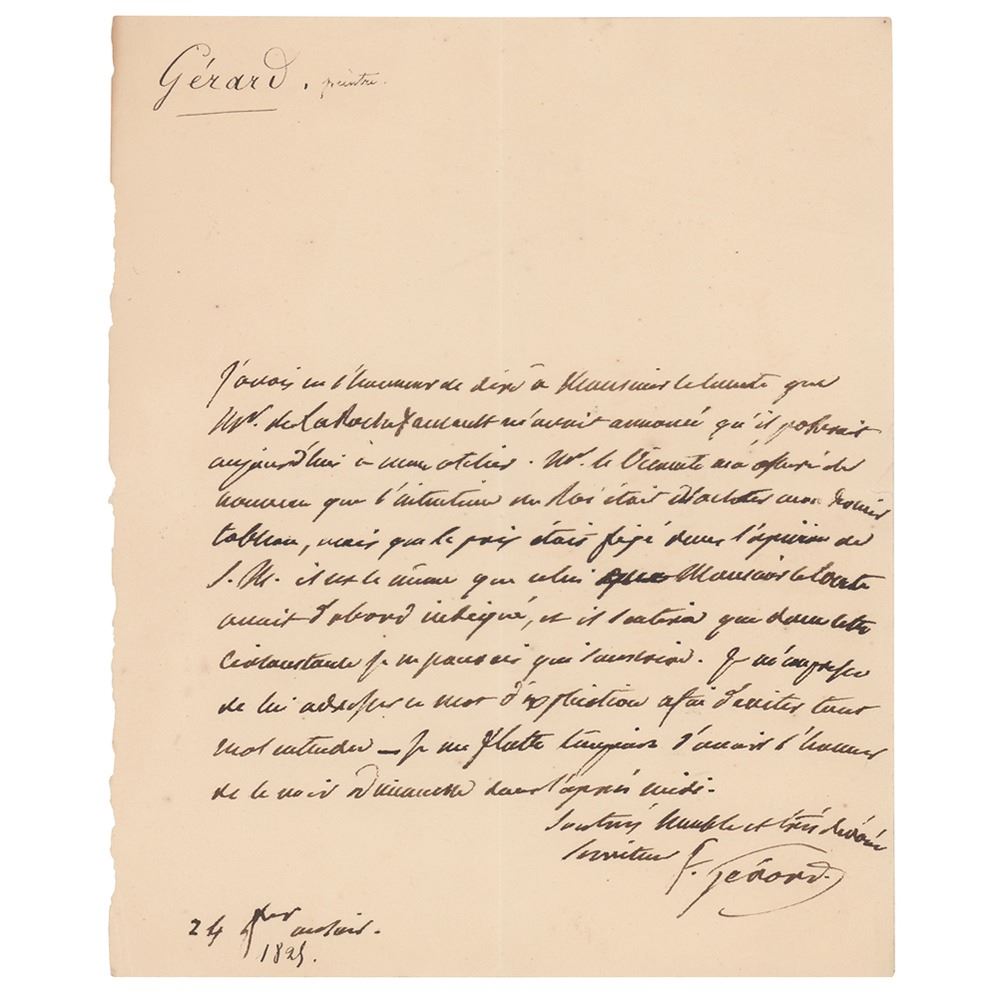 Gérard. peintre.
J'avais eu l'honneur de dire à Monsieur le Comte que
Mr. de La Rochefaucault m'avait annoncé qu'il passerait
aujourd'hui à mon atelier. Mr. le Vicomte m'a assuré de
nouveau que l'intention du Roi était d'acheter mon dernier
tableau, mais que le prix était fixé dans l'opinion de
S. M. il est le même que celui que Monsieur le Comte
avait d'abord indiqué, et il sentira que dans cette
circonstance je ne pouvais que souscrire. Je m'empresse
de lui adresser ce mot d'explication afin d'éviter tout
mal entendu — je me flatte toujours d'avoir l'honneur
de le voir dimanche dans l'après midi.
Son très humble et très dévoué
serviteur F. Gérard.
24 au soir.